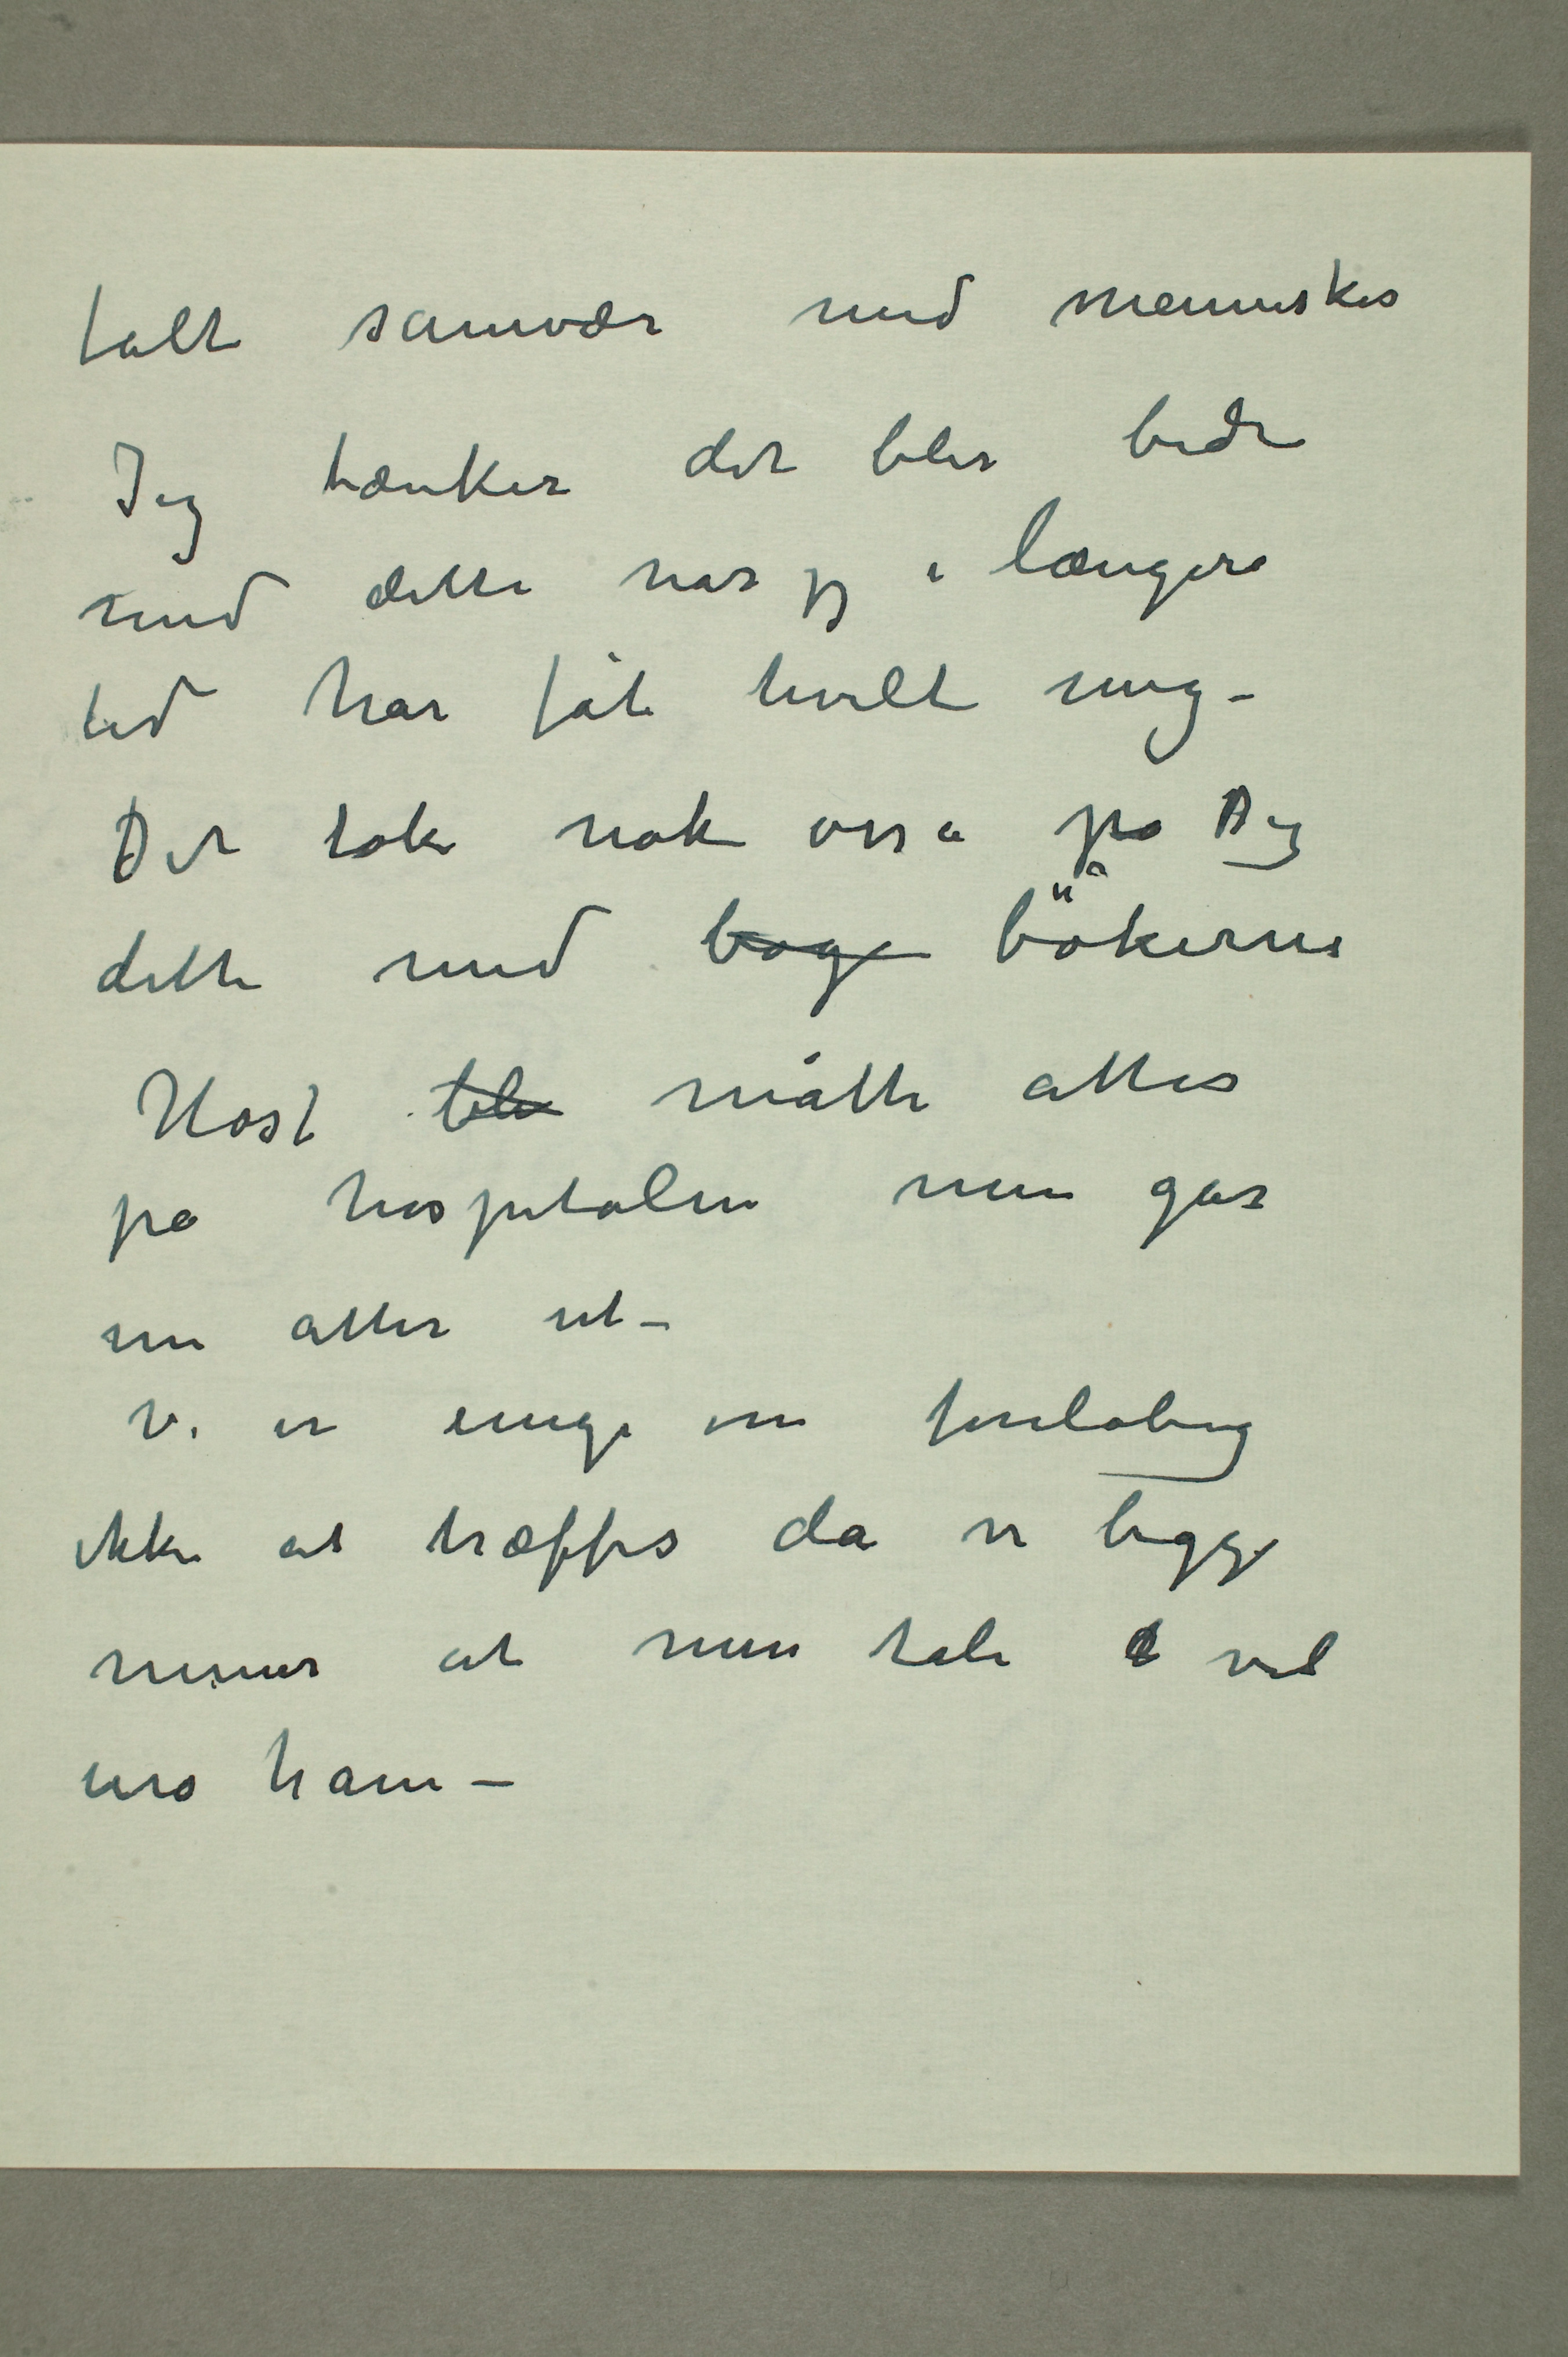 talt samvær med mennesker
Jeg tænker det blir bedre
med dette når jeg i længere
tid har fåt hvilt mig –
Det tok nok også på Dig
dette med bøge bökerne
Høst ble måtte atter
på hospitalen men går
nu atter ut –
Vi er enige om foreløbig
ikke at træffes da vi begge
mener at min tale vil
uro ham –